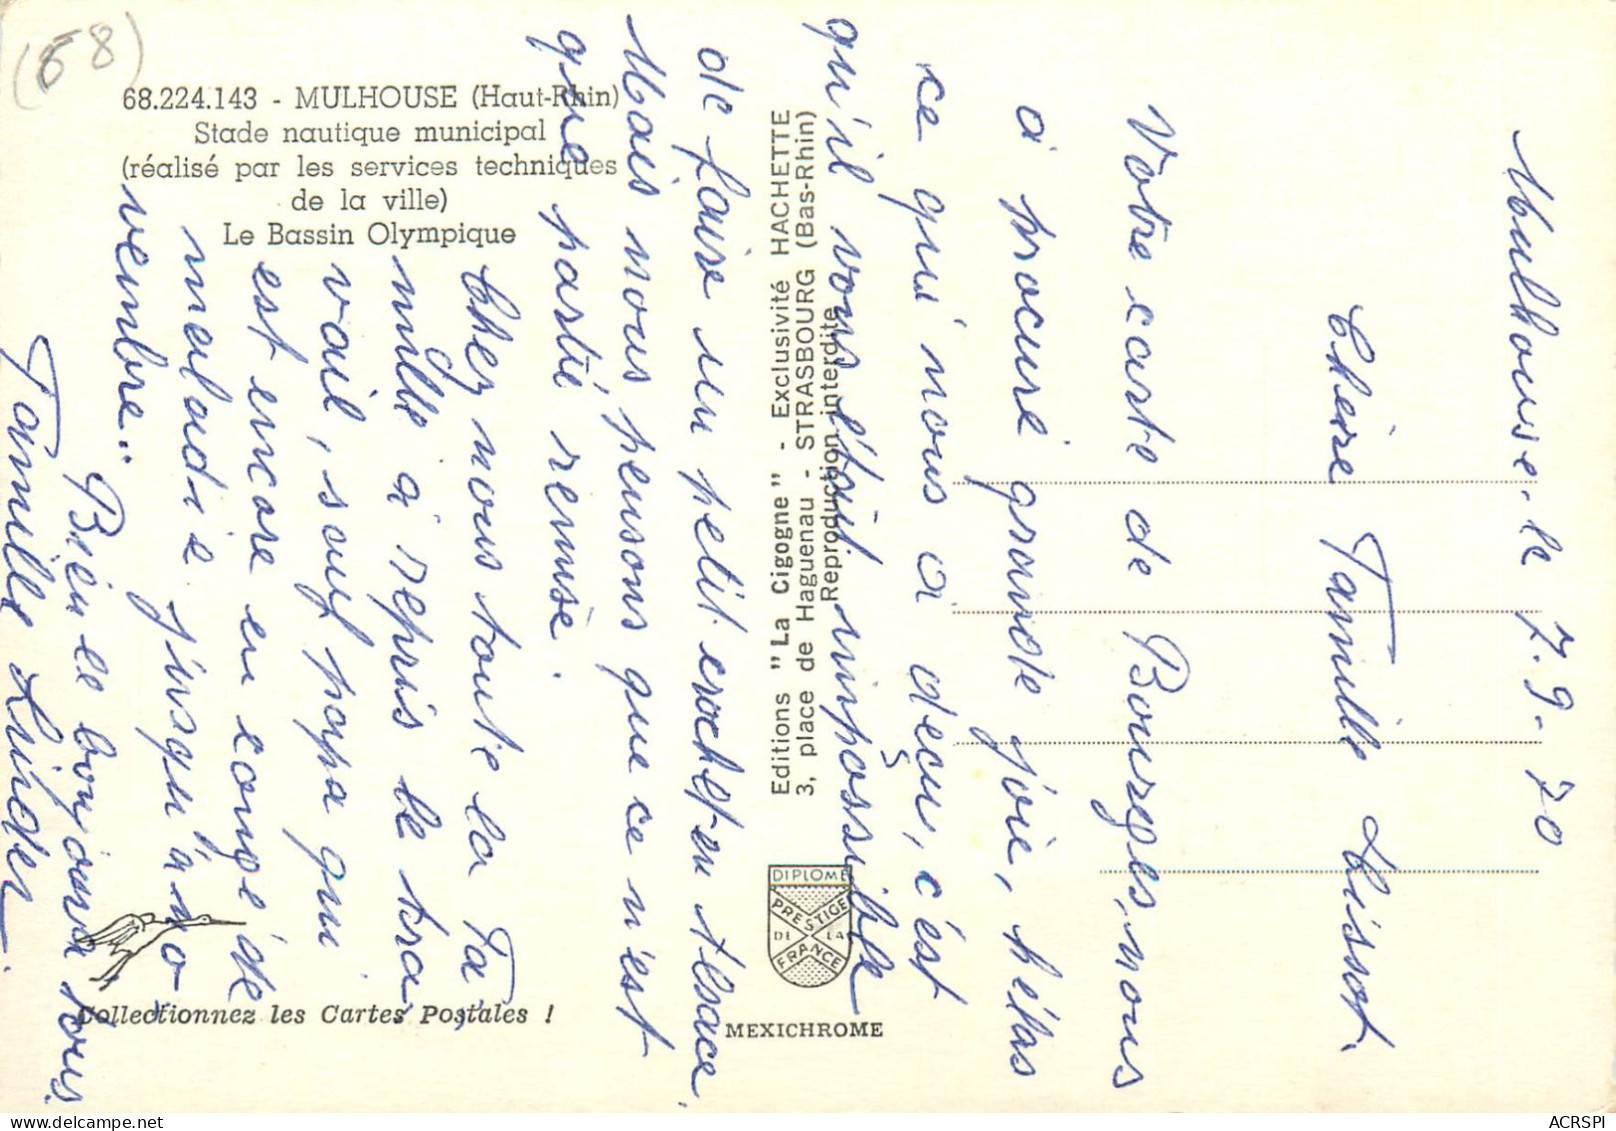 (68)
68.224.143 - MULHOUSE (Haut-Rhin)
Stade nautique municipal
(réalisé par les services techniques
de la ville)
Le Bassin Olympique
Editions "La Cigogne" - Exclusivité HACHETTE
3, place de Haguenau - STRASBOURG (Bas-Rhin)
Reproduction interdite
DIPLOME
PRESTIGE
DE LA
FRANCE
MEXICHROME
Collectionnez les Cartes Postales !
Mulhouse. le 7.9.70
Chère Famille Lissot.
Votre carte de Bourges, nous
a procuré grande joie, hélas
ce qui nous a déçu, c'est
qu'il vous était impossible
de faire un petit crochet en Alsace.
Mais nous pensons que ce n'est
que partie remise.
Chez nous toute la fa,
mille a repris le tra,
vail, sauf papa qui
est encore en congé de
maladie jusqu'à no,
vembre..
Bien le bonjour à tous.
Famille Linder.
ACRSPI